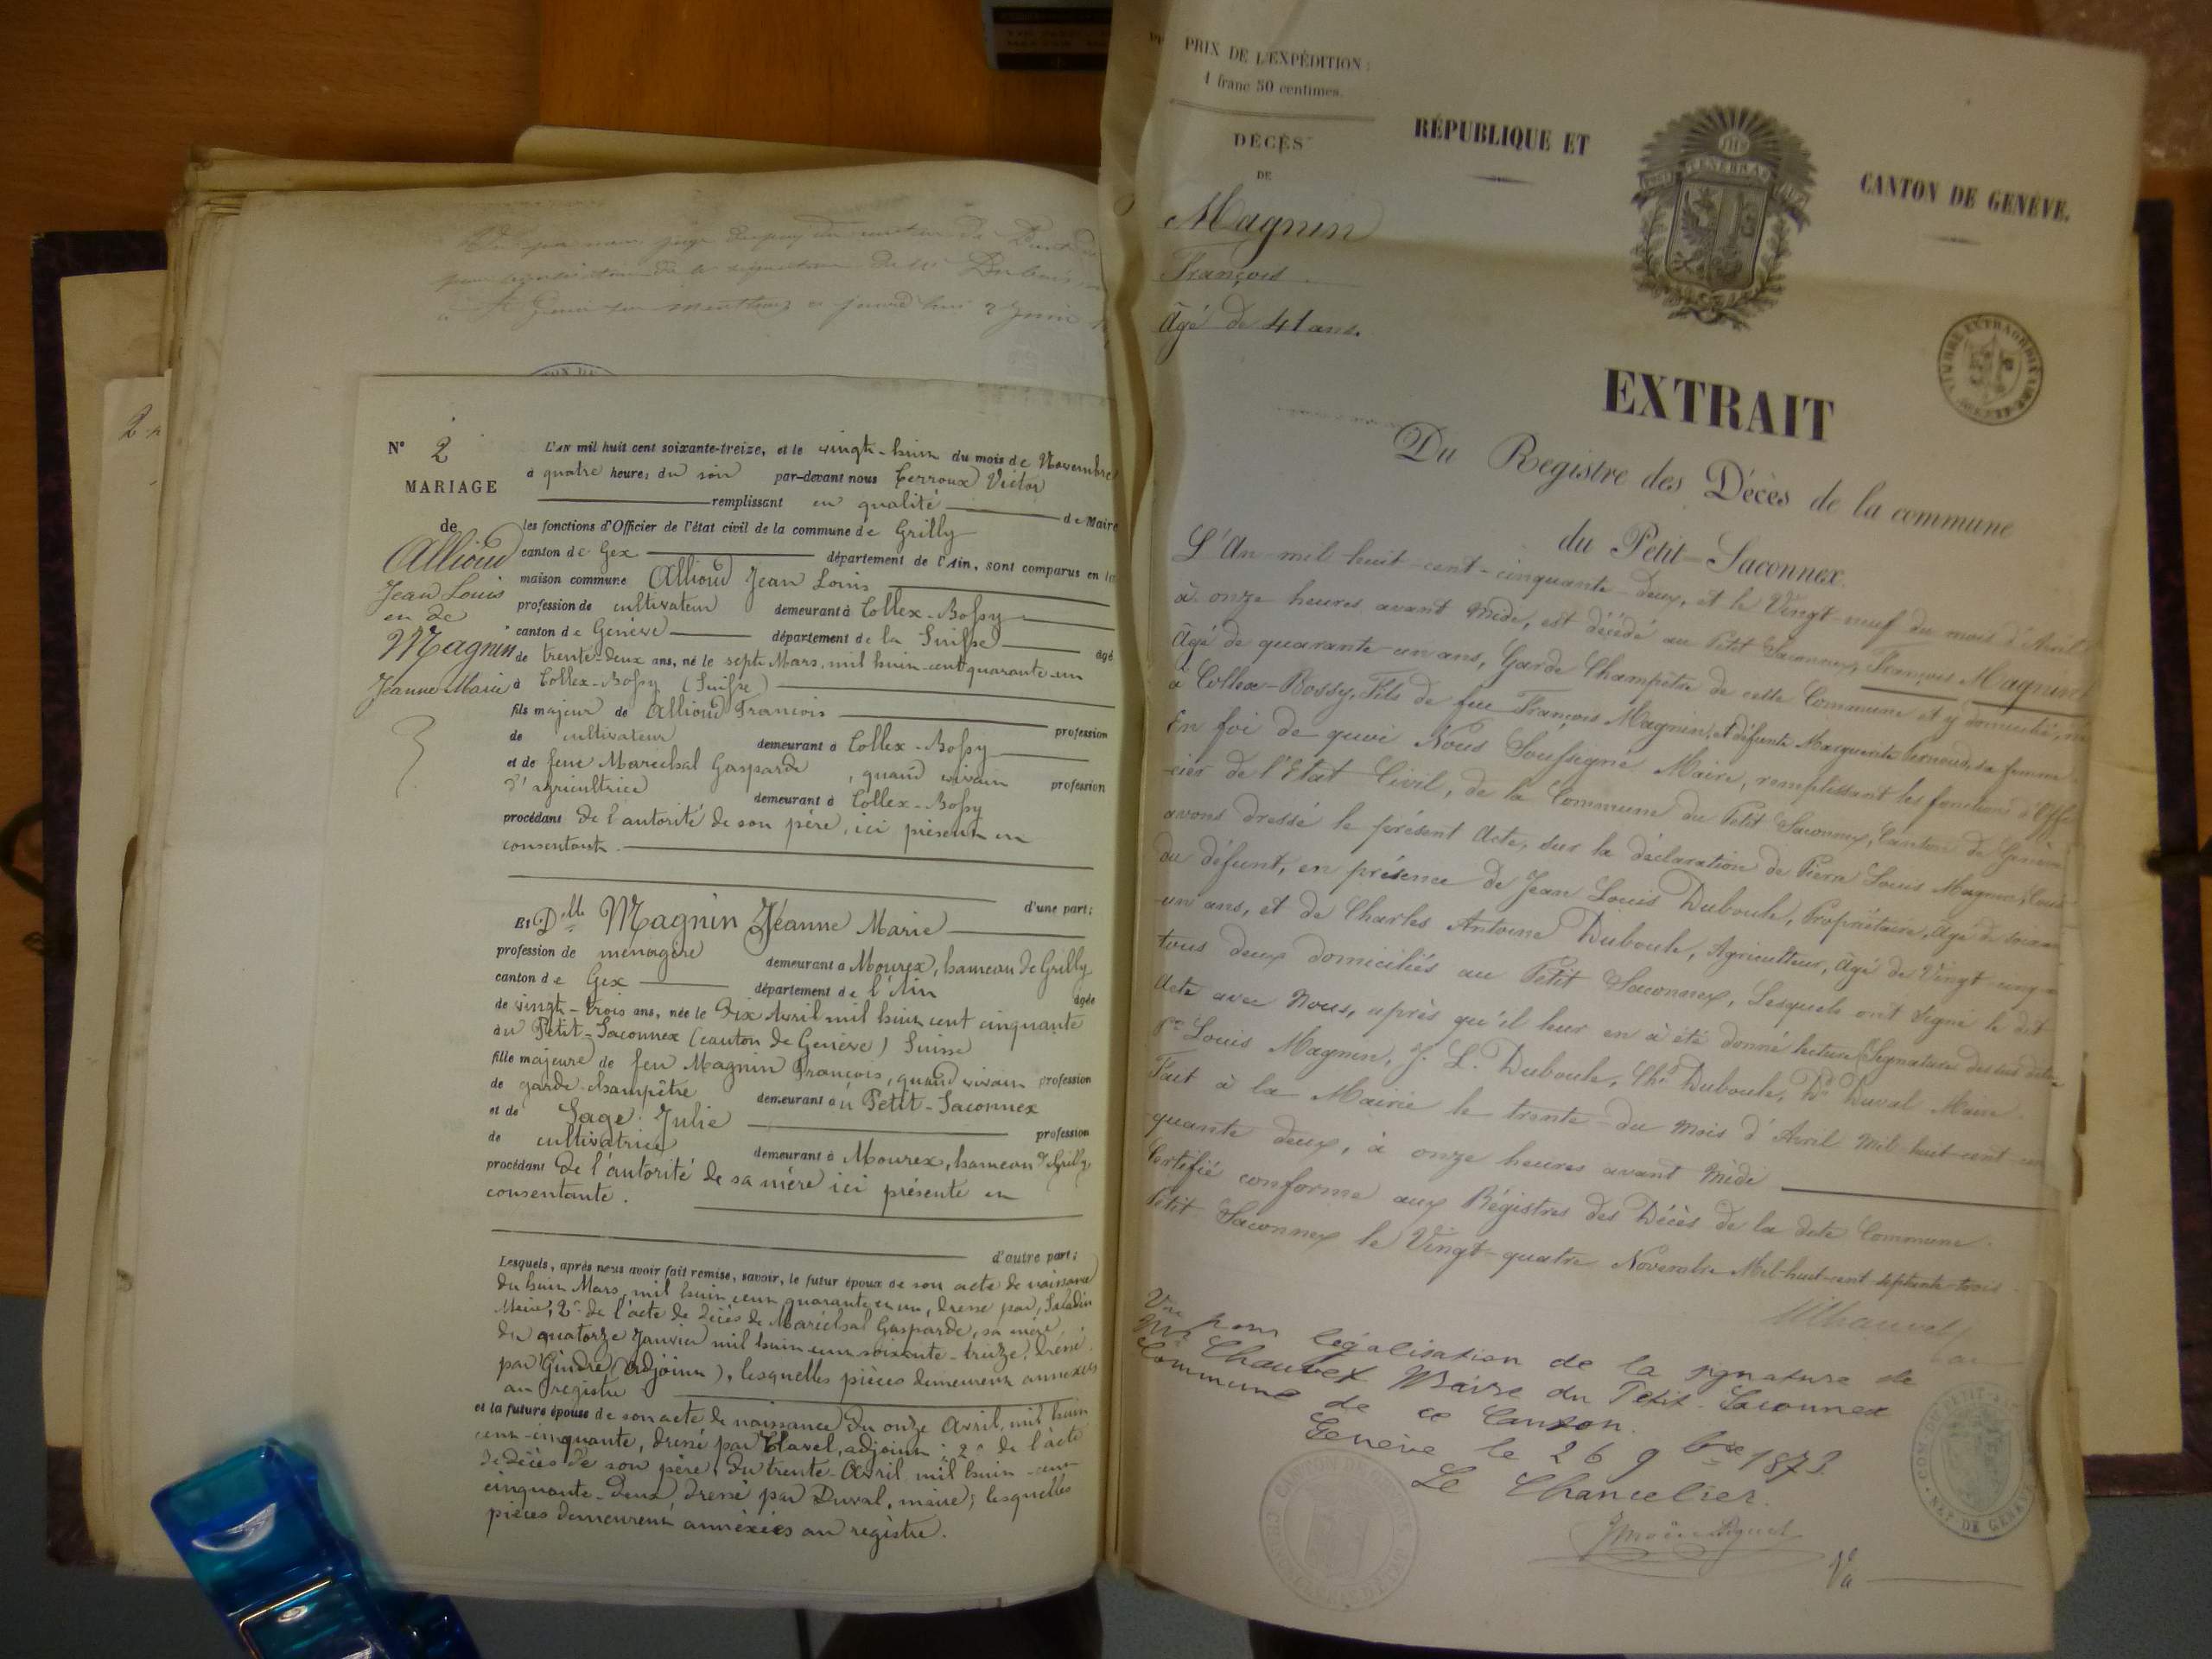 pour
à St Genis
2 Juin
N° 2
MARIAGE
de
Allioud
Jean Louis
et de
Magnin
Jeanne Marie
L'AN mil huit cent soixante-treize, et le vingt-huit du mois de Novembre
à quatre heures du soir par-devant nous Terroux Victor
remplissant en qualité de Maire
les fonctions d'Officier de l'état civil de la commune de Grilly
canton de Gex département de l'Ain, sont comparus en la
maison commune Allioud Jean Louis
profession de cultivateur demeurant à Collex-Bossy
canton de Genève département de la Suisse âgé
de trente-deux ans, né le sept Mars, mil huit-cent quarante-un
à Collex-Bossy (Suisse)
fils majeur de Allioud François profession
de cultivateur demeurant à Collex-Bossy
et de feue Maréchal Gasparde, quand vivait profession
d'agricultrice demeurant à Collex-Bossy
procédant de l'autorité de son père, ici présent et
consentant.
d'une part;
Et Dlle Magnin Jeanne Marie
profession de ménagère demeurant à Mourex, hameau de Grilly
canton de Gex département de l'Ain âgée
de vingt-trois ans, née le Dix Avril mil huit cent cinquante
au Petit-Saconnex (canton de Genève) Suisse
fille majeure de feu Magnin François, quand vivait profession
de garde-champêtre demeurant au Petit-Saconnex
et de Sage Julie profession
de cultivatrice demeurant à Mourex, hameau de Grilly,
procédant de l'autorité de sa mère ici présente et
consentante.
d'autre part;
Lesquels, après nous avoir fait remise, savoir, le futur époux de son acte de naissance
du huit Mars, mil huit cent quarante et un, dressé par, Saladin
Maire; 2° de l'acte de décès de Maréchal Gasparde, sa mère,
du quatorze Janvier mil huit cent soixante-treize, dressé
par Gindre (adjoint), lesquelles pièces demeurent annexées
au registre
et la future épouse de son acte de naissance du onze Avril, mil huit
cent-cinquante, dressé par Clavel, adjoint; 2° de l'acte
de décès de son père, du trente-Avril, mil huit-cent
cinquante-deux, dressé par Duval, maire; lesquelles
pièces demeurent annéxées au registre.
PRIX DE L'EXPÉDITION:
1 franc 50 centimes.
DÉCÈS
DE
Magnin
François
âgé de 41 ans.
RÉPUBLIQUE ET CANTON DE GENÈVE.
TIMBRE EXTRAORDINAIRE
EXTRAIT
Du Registre des Décès de la commune
du Petit-Saconnex.
L'An mil huit-cent-cinquante-deux, et le Vingt-neuf du mois d'Avril
à onze heures avant Midi, est décédé au Petit Saconnex, François Magnin
âgé de quarante-un ans, Garde Champêtre de cette Commune et y domicilié, né
à Collex-Bossy, Fils de feu François Magnin, et défunte Marguerite Pernoud, sa femme
En foi de quoi Nous Soussigné Maire, remplissant les fonctions d'Offi-
cier de l'Etat Civil, de la Commune du Petit Saconnex, Canton de Genève
avons dressé le présent Acte, sur la déclaration de Pierre Louis Magnin,
du défunt, en présence de Jean Louis Duboule, Propriétaire, âgé de soixante
un ans, et de Charles Antoine Duboule, Agriculteur, âgé de Vingt-cinq
tous deux domiciliés au Petit Saconnex, Lesquels ont signé le dit
Acte avec Nous, après qu'il leur en a été donné lecture
Louis Magnin, J. L. Duboule, Chs Duboule, Duval Maire.
Fait à la Mairie le trente du mois d'Avril mil huit-cent-cin
quante deux, à onze heures avant Midi
Certifié conforme aux Régistres des Décès de la dite Commune.
Petit-Saconnex le Vingt-quatre Novembre Mil-huit-cent septante-trois.
Vu pour légalisation de la signature de
Mr Chauvet Maire du Petit-Saconnex
Commune de ce Canton.
Genève le 26 9bre 1873
Le Chancelier.